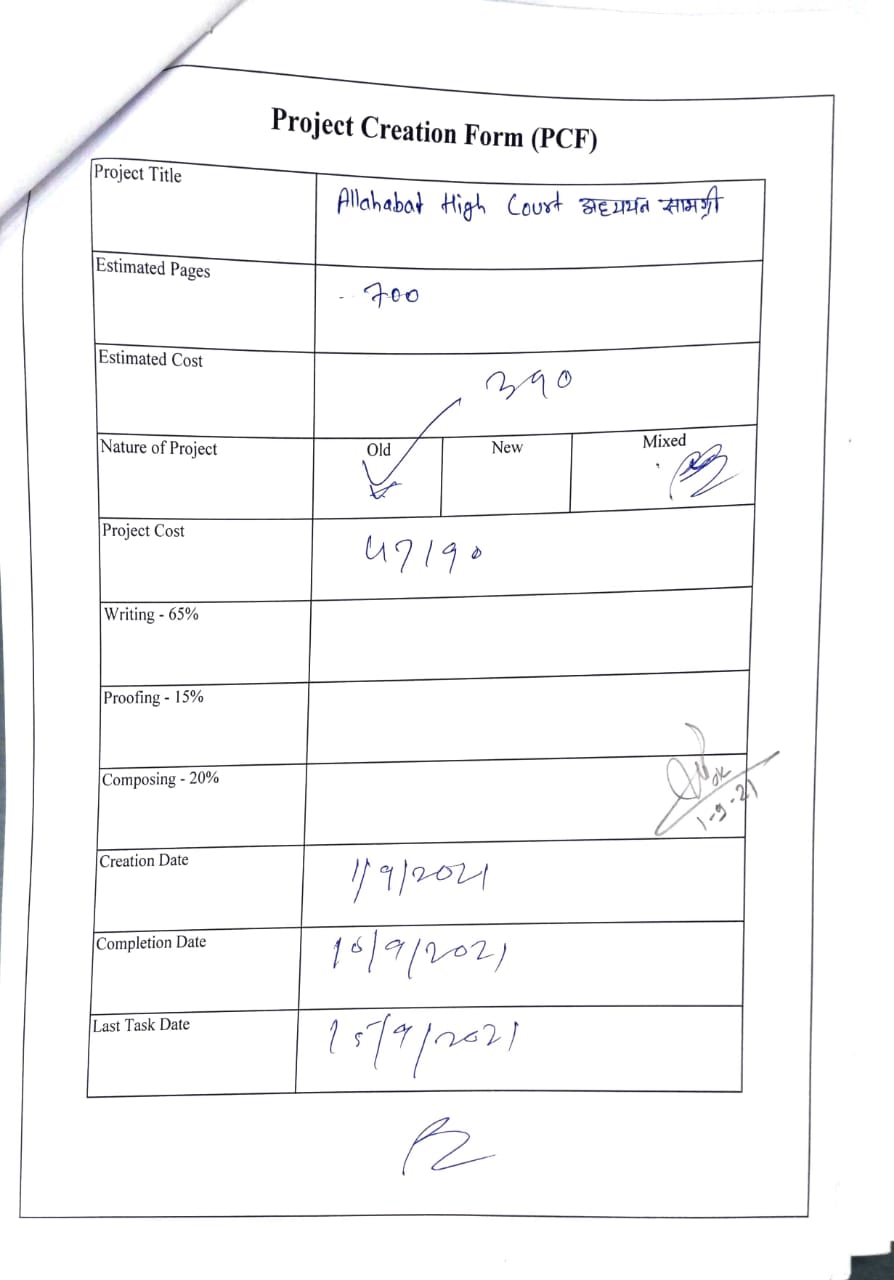 Project Creation Form (PCF)
Project Title
Allahabat High Court अध्ययन सामग्री
Estimated Pages
- 700
Estimated Cost
390
Nature of Project
Old New Mixed
Project Cost
47190
Writing - 65%
Proofing - 15%
Composing - 20%
ok
1-9-21
Creation Date
1/9/2021
Completion Date
16/9/2021
Last Task Date
15/9/2021